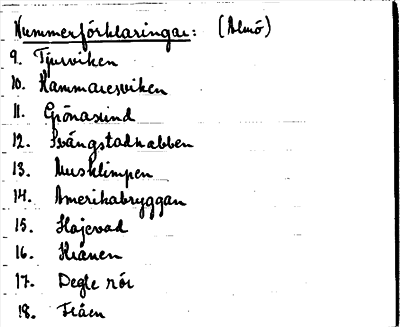 Nummerförklaringar: (Almö)
9. Tjurviken
10. Hammaresviken
11. Grönasund
12. Svängstadkabben
13. Musklimpen
14. Amerikabryggan
15. Hajevad
16. Kranen
17. Degle rör
18.